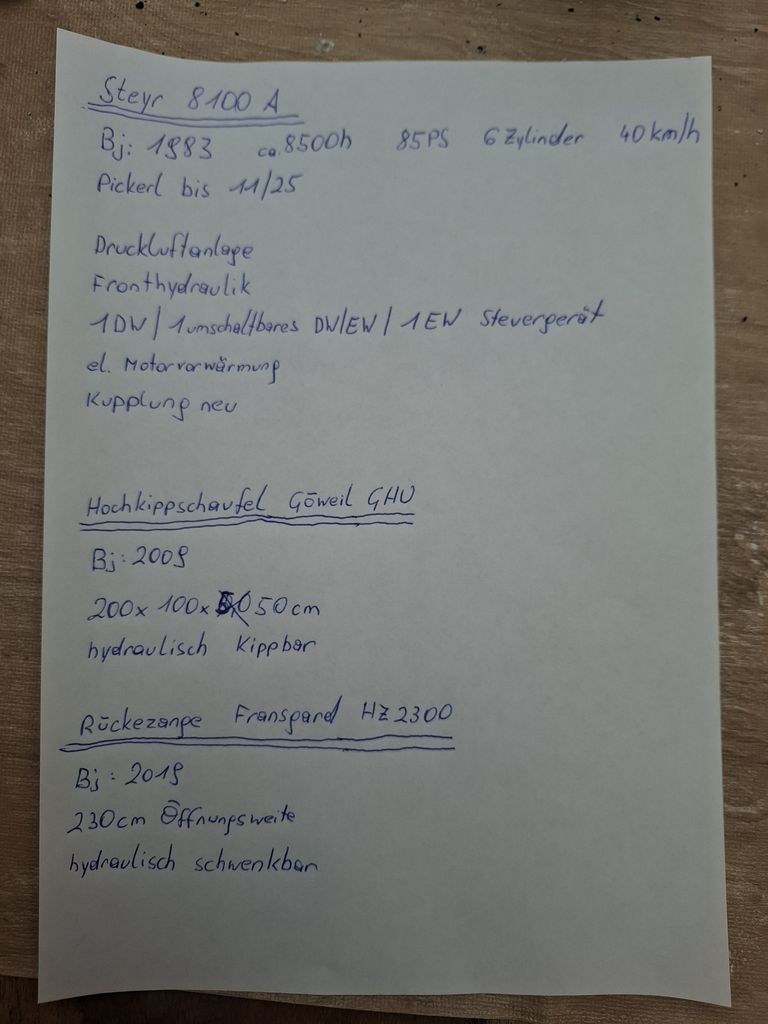 Steyr 8100 A
Bj: 1983 ca. 8500h 85PS 6 Zylinder 40 km/h
Pickerl bis 11/25
Druckluftanlage
Fronthydraulik
1 DW / 1 umschaltbares DW/EW / 1 EW Steuergerät
el. Motorvorwärmung
Kupplung neu
Hochkippschaufel Göweil GHU
Bj: 2009
200 x 100 x 50 cm
hydraulisch kippbar
Rückezange Fransgard HZ 2300
Bj: 2019
230 cm Öffnungsweite
hydraulisch schwenkbar